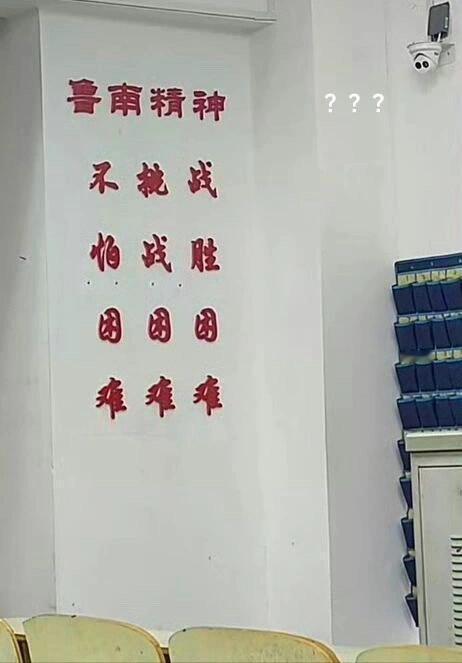 鲁南精神
？？？
不怕困难
挑战困难
战胜困难